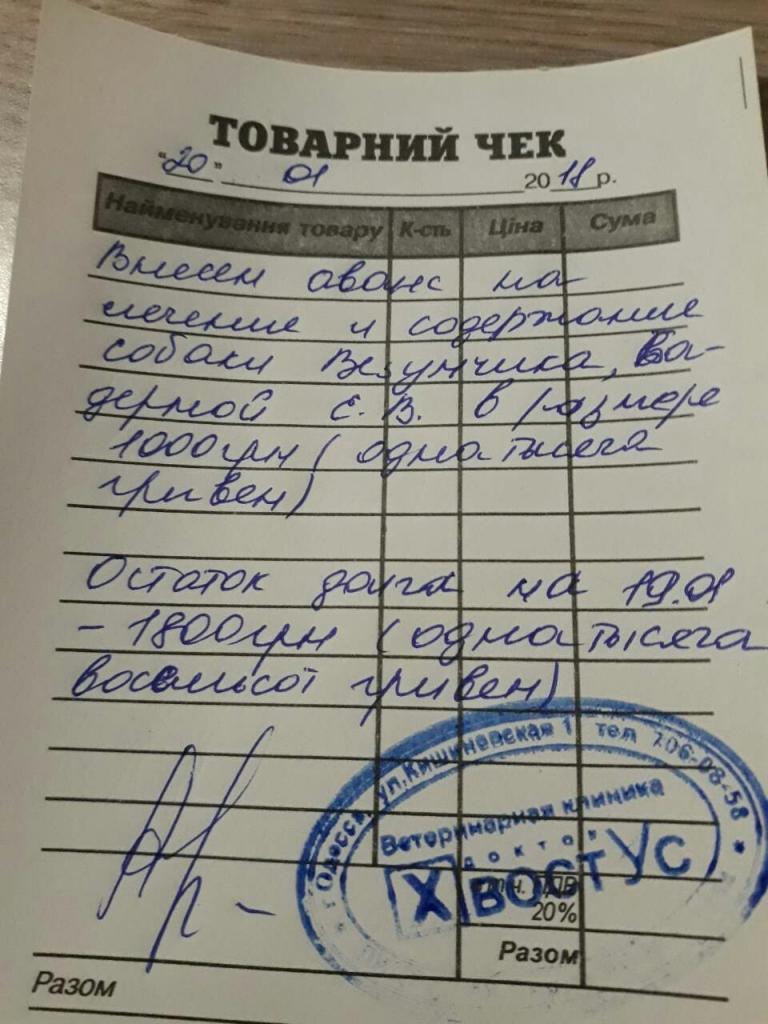 ТОВАРНИЙ ЧЕК
"20" 01 2018 р.
Найменування товару К-сть Ціна Сума
Внесен аванс на
лечение и содержание
собаки Везунчика, Ва-
дерной С.В. в размере
1000грн (одна тысяча
гривен)
Остаток долга на 19.01
- 1800грн (одна тысяча
восемьсот гривен)
г.Одесса, ул.Кишиневская 1 тел 706-08-58
Ветеринарная клиника
доктор
ХВОСТУС
ПДВ
20%
Разом
Разом